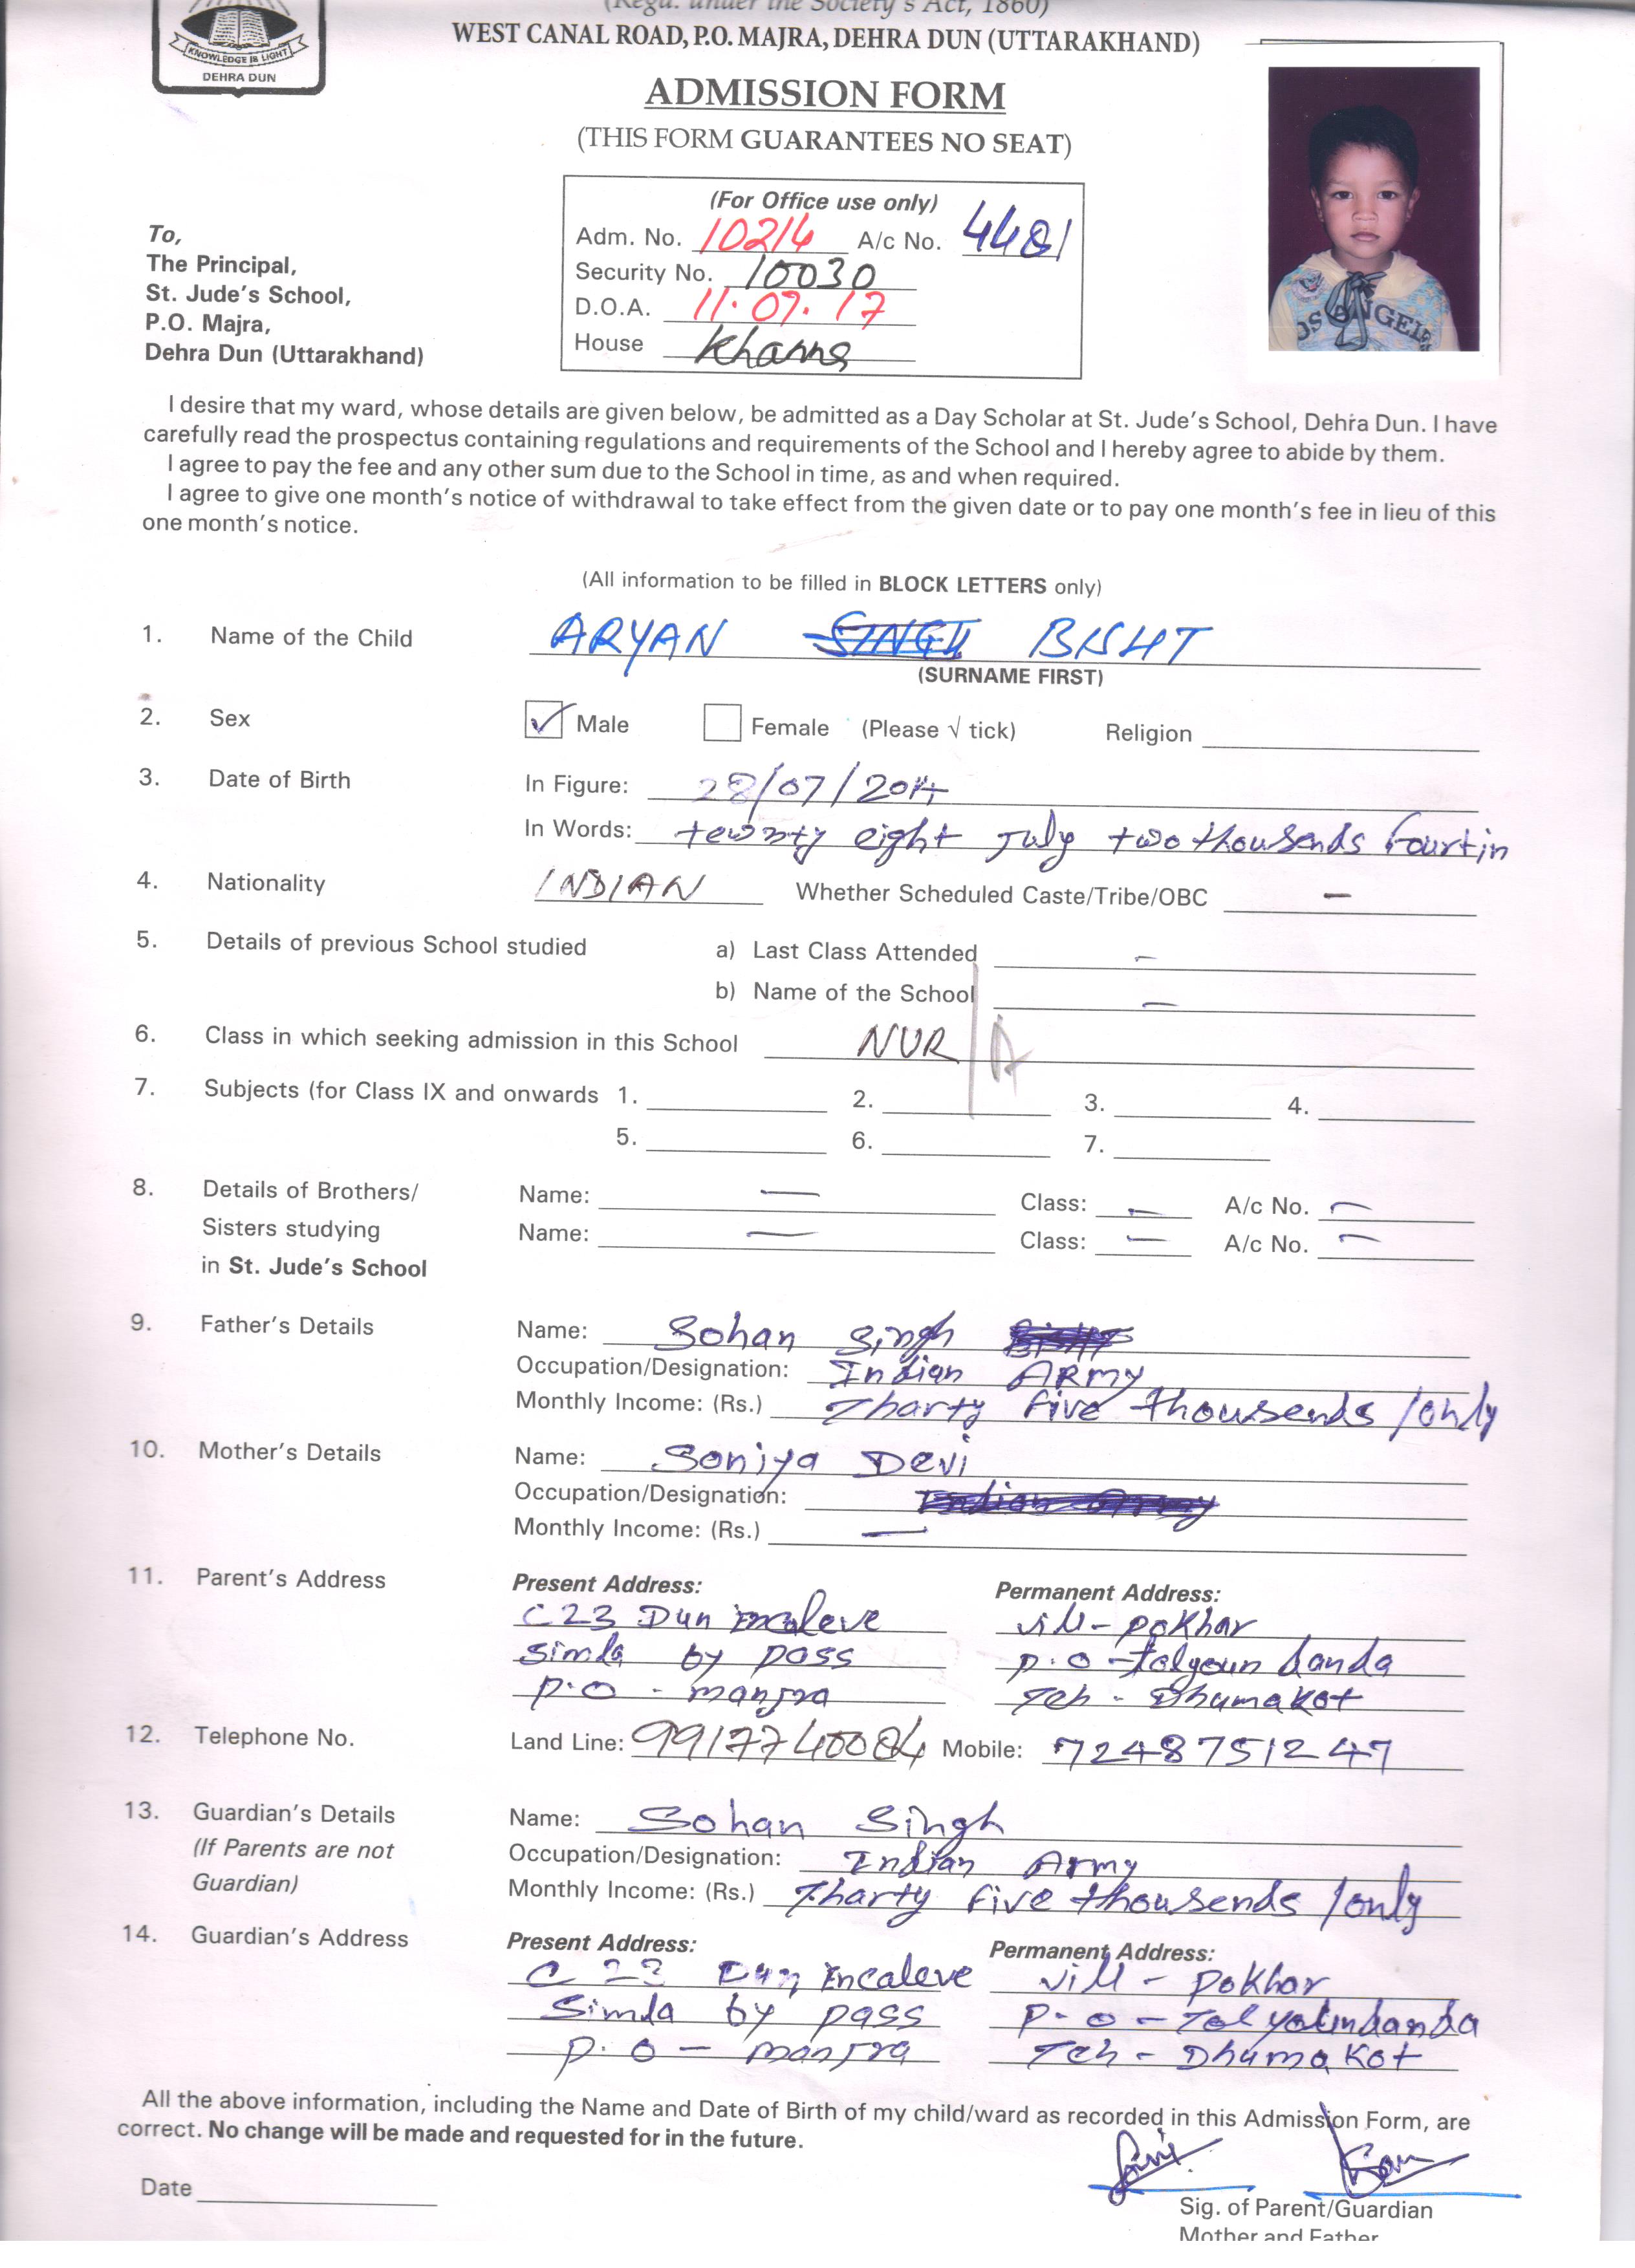 (Regd. under the Society's Act, 1860)
WEST CANAL ROAD, P.O. MAJRA, DEHRA DUN (UTTARAKHAND)
KNOWLEDGE IS LIGHT
DEHRA DUN
ADMISSION FORM
(THIS FORM GUARANTEES NO SEAT)
(For Office use only)
Adm. No. 10214 A/c No. 4481
Security No. 10030
D.O.A. 11.07.17
House Khanna
To,
The Principal,
St. Jude's School,
P.O. Majra,
Dehra Dun (Uttarakhand)
OS ANGEL
I desire that my ward, whose details are given below, be admitted as a Day Scholar at St. Jude's School, Dehra Dun. I have
carefully read the prospectus containing regulations and requirements of the School and I hereby agree to abide by them.
I agree to pay the fee and any other sum due to the School in time, as and when required.
I agree to give one month's notice of withdrawal to take effect from the given date or to pay one month's fee in lieu of this
one month's notice.
(All information to be filled in BLOCK LETTERS only)
1. Name of the Child ARYAN SINGH BISHT
(SURNAME FIRST)
2. Sex Male Female (Please √ tick) Religion
3. Date of Birth In Figure: 28/07/2014
In Words: tewnty eight July two thousends fourtin
4. Nationality INDIAN Whether Scheduled Caste/Tribe/OBC -
5. Details of previous School studied a) Last Class Attended -
b) Name of the School -
6. Class in which seeking admission in this School NUR/A
7. Subjects (for Class IX and onwards 1. 2. 3. 4.
5. 6. 7.
8. Details of Brothers/ Name: - Class: - A/c No. -
Sisters studying Name: - Class: - A/c No. -
in St. Jude's School
9. Father's Details Name: Sohan Singh
Occupation/Designation: Indian ARMY
Monthly Income: (Rs.) Tharty five thousends /only
10. Mother's Details Name: Soniya Devi
Occupation/Designation: Indian Army
Monthly Income: (Rs.) -
11. Parent's Address Present Address: Permanent Address:
C 23 Dun Encaleve vill - pokhar
Simla by pass p.o - talyoun danda
p.o - manjra Teh - Dhumakot
12. Telephone No. Land Line: 9917740084 Mobile: 7248751247
13. Guardian's Details Name: Sohan Singh
(If Parents are not Occupation/Designation: Indian Army
Guardian) Monthly Income: (Rs.) Tharty five thousends /only
14. Guardian's Address Present Address: Permanent Address:
C 23 Dun Encaleve vill - pokhar
Simla by pass p.o - Talyoundanda
p.o - manjra Teh - Dhumakot
All the above information, including the Name and Date of Birth of my child/ward as recorded in this Admission Form, are
correct. No change will be made and requested for in the future.
Date
Sig. of Parent/Guardian
Mother and Father